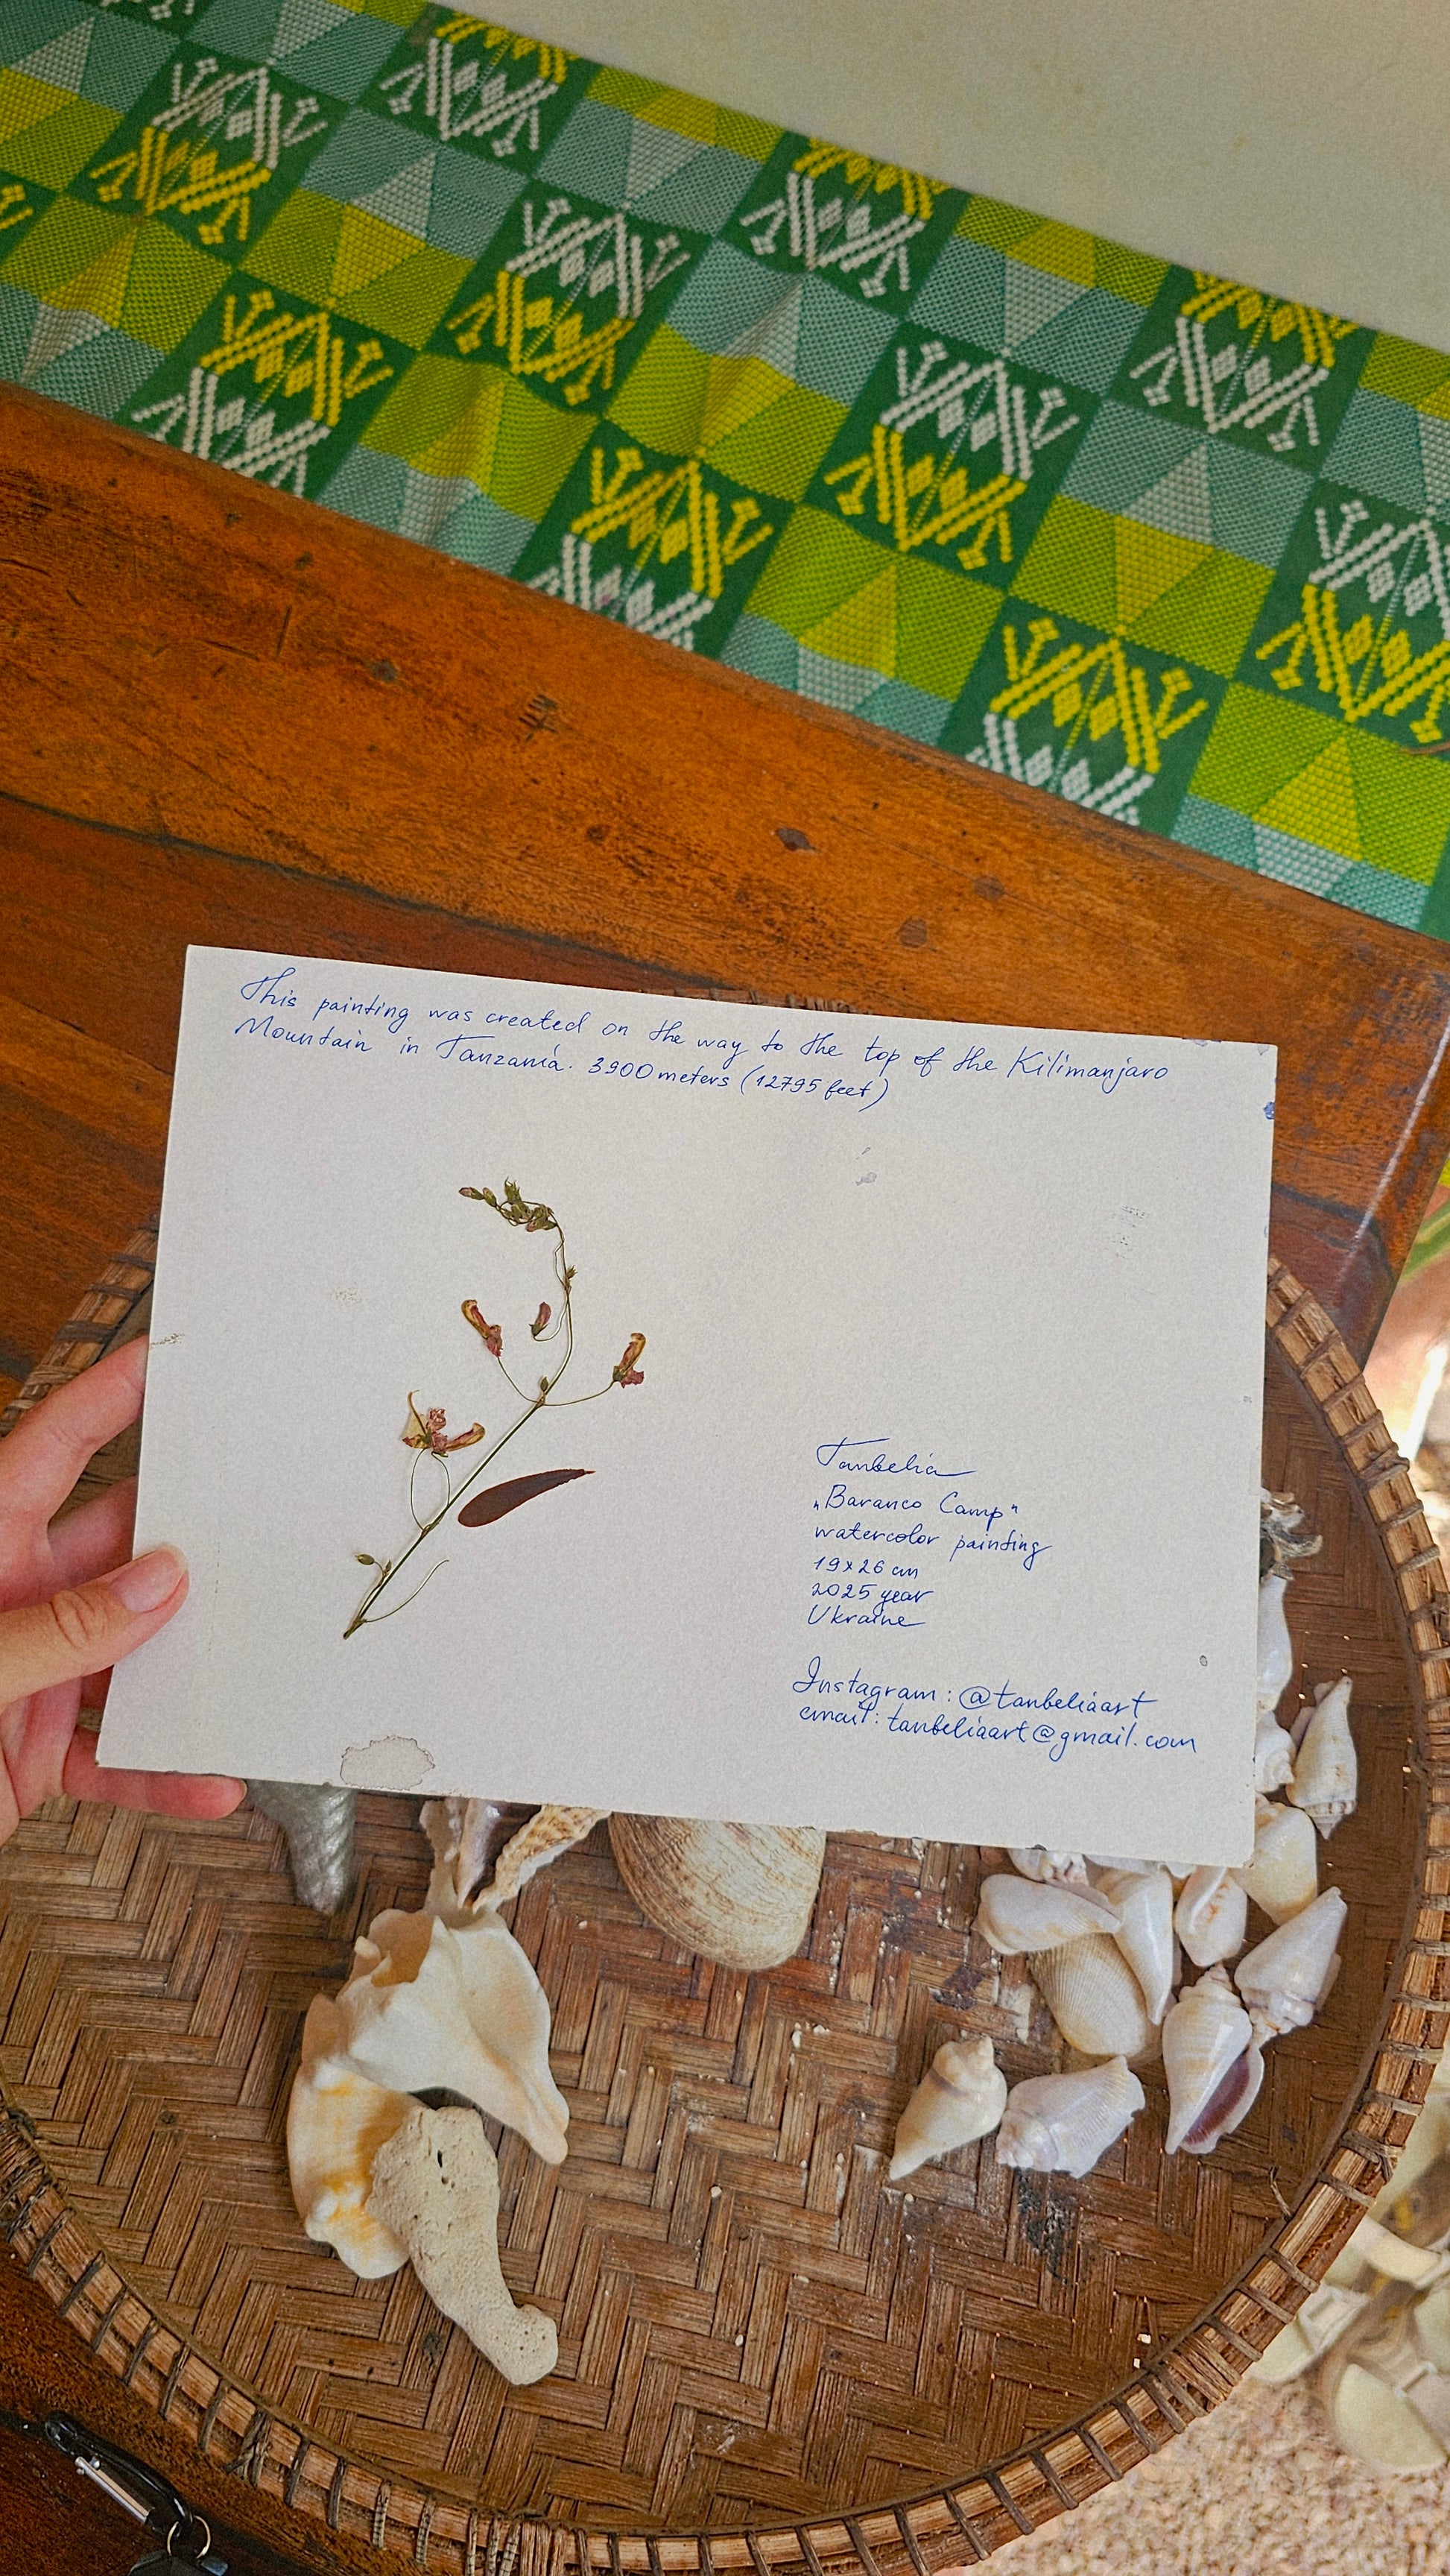 This painting was created on the way to the top of the Kilimanjaro
Mountain in Tanzania. 3900 meters (12795 feet)
Tanbelia
„Baranco Camp"
watercolor painting
19x26 cm
2025 year
Ukraine
Instagram: @tanbeliaart
email: tanbeliaart@gmail.com